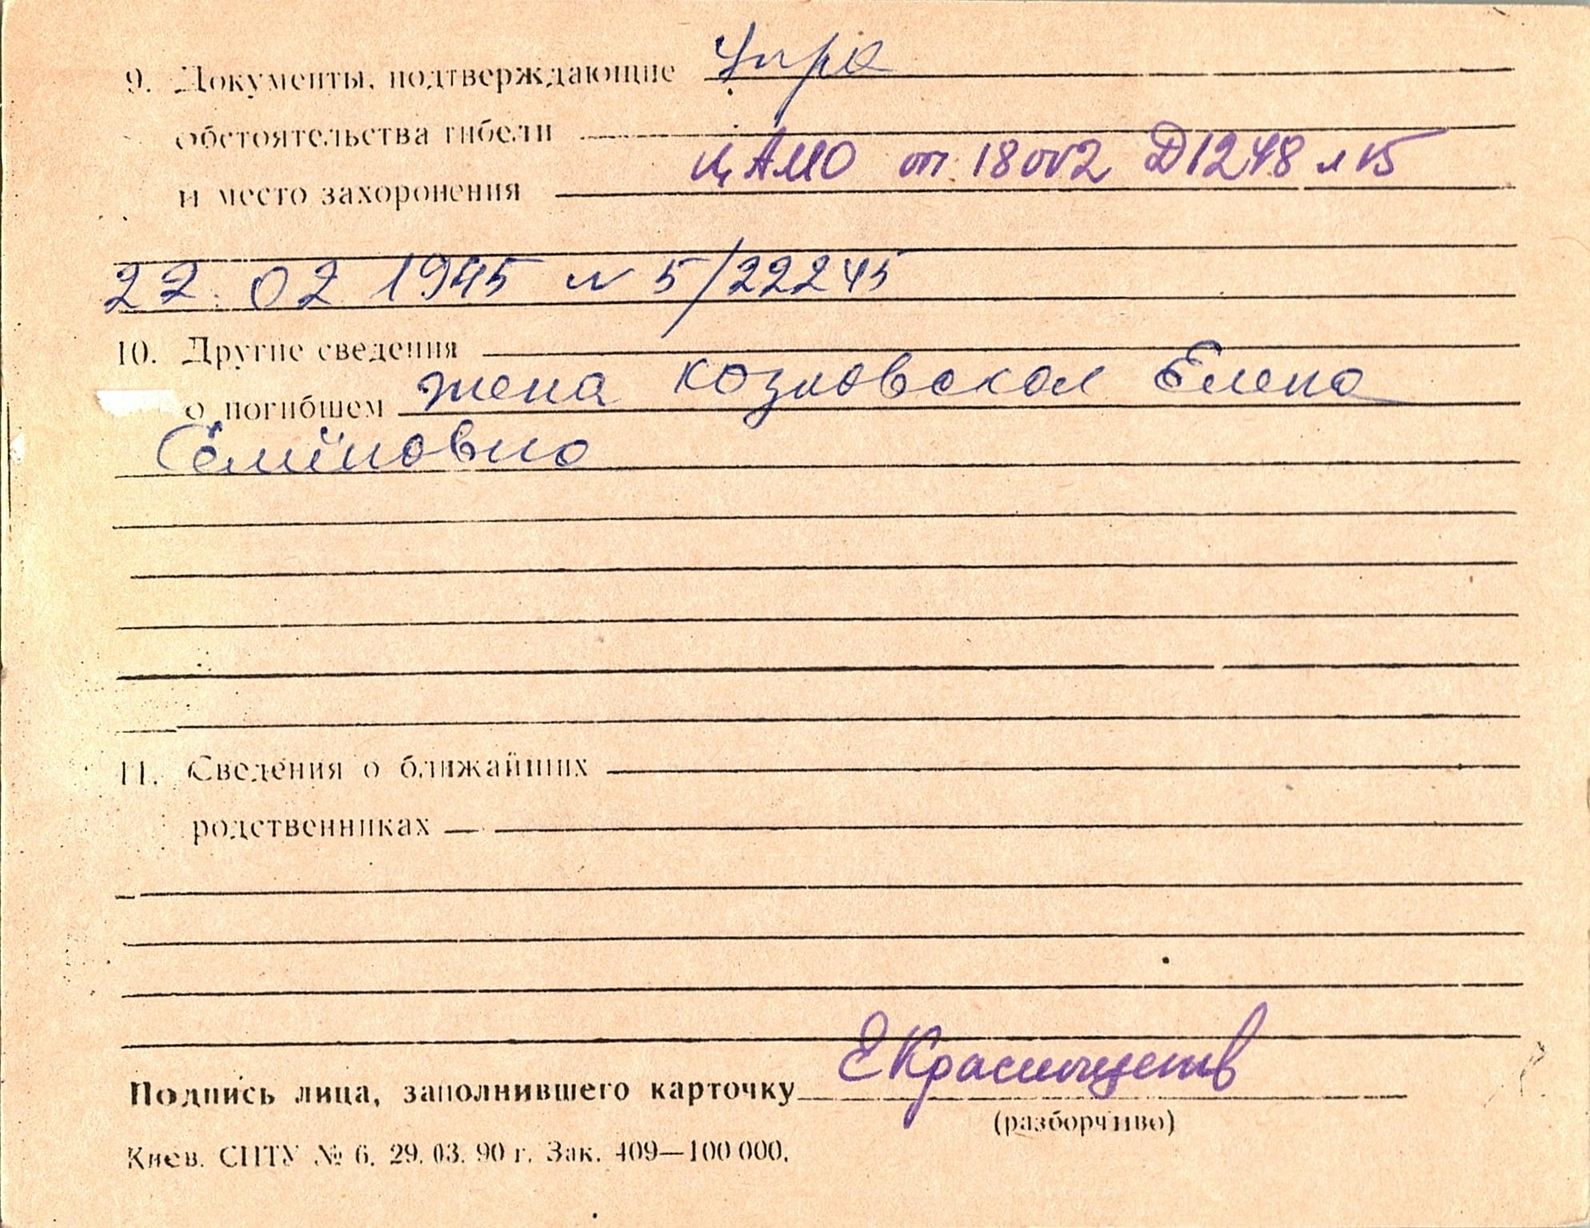 9. Документы, подтверждающие Упра
обстоятельства гибели
ЦАМО оп 18002 Д1248 л 15
и место захоронения
22. 02 1945 N 5/22245
10. Другие сведения
о погибшем жена Козловская Елена
Семёновна
11. Сведения о ближайших
родственниках
Подпись лица, заполнившего карточку
(разборчиво)
Киев. СПТУ № 6. 29. 03. 90 г. Зак. 409—100 000.